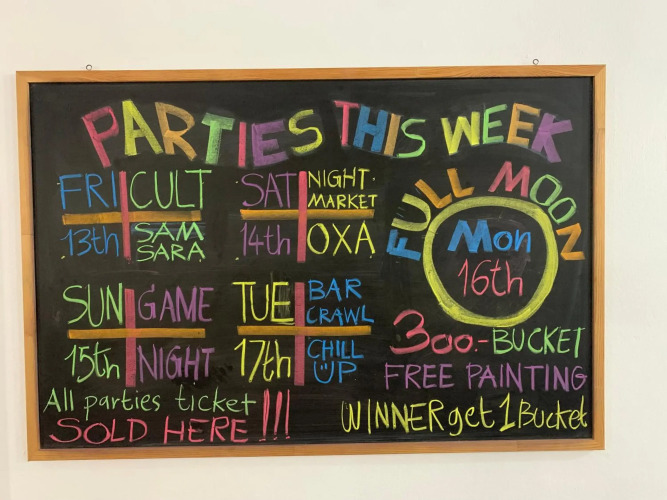 PARTIES THIS WEEK
FRI CULT
13th SAM
SARA
SAT NIGHT
MARKET
14th OXA
FULL MOON
Mon
16th
SUN GAME
15th NIGHT
TUE BAR
CRAWL
17th CHILL
UP
300.- BUCKET
FREE PAINTING
WINNER get 1 Bucket
All parties ticket
SOLD HERE !!!